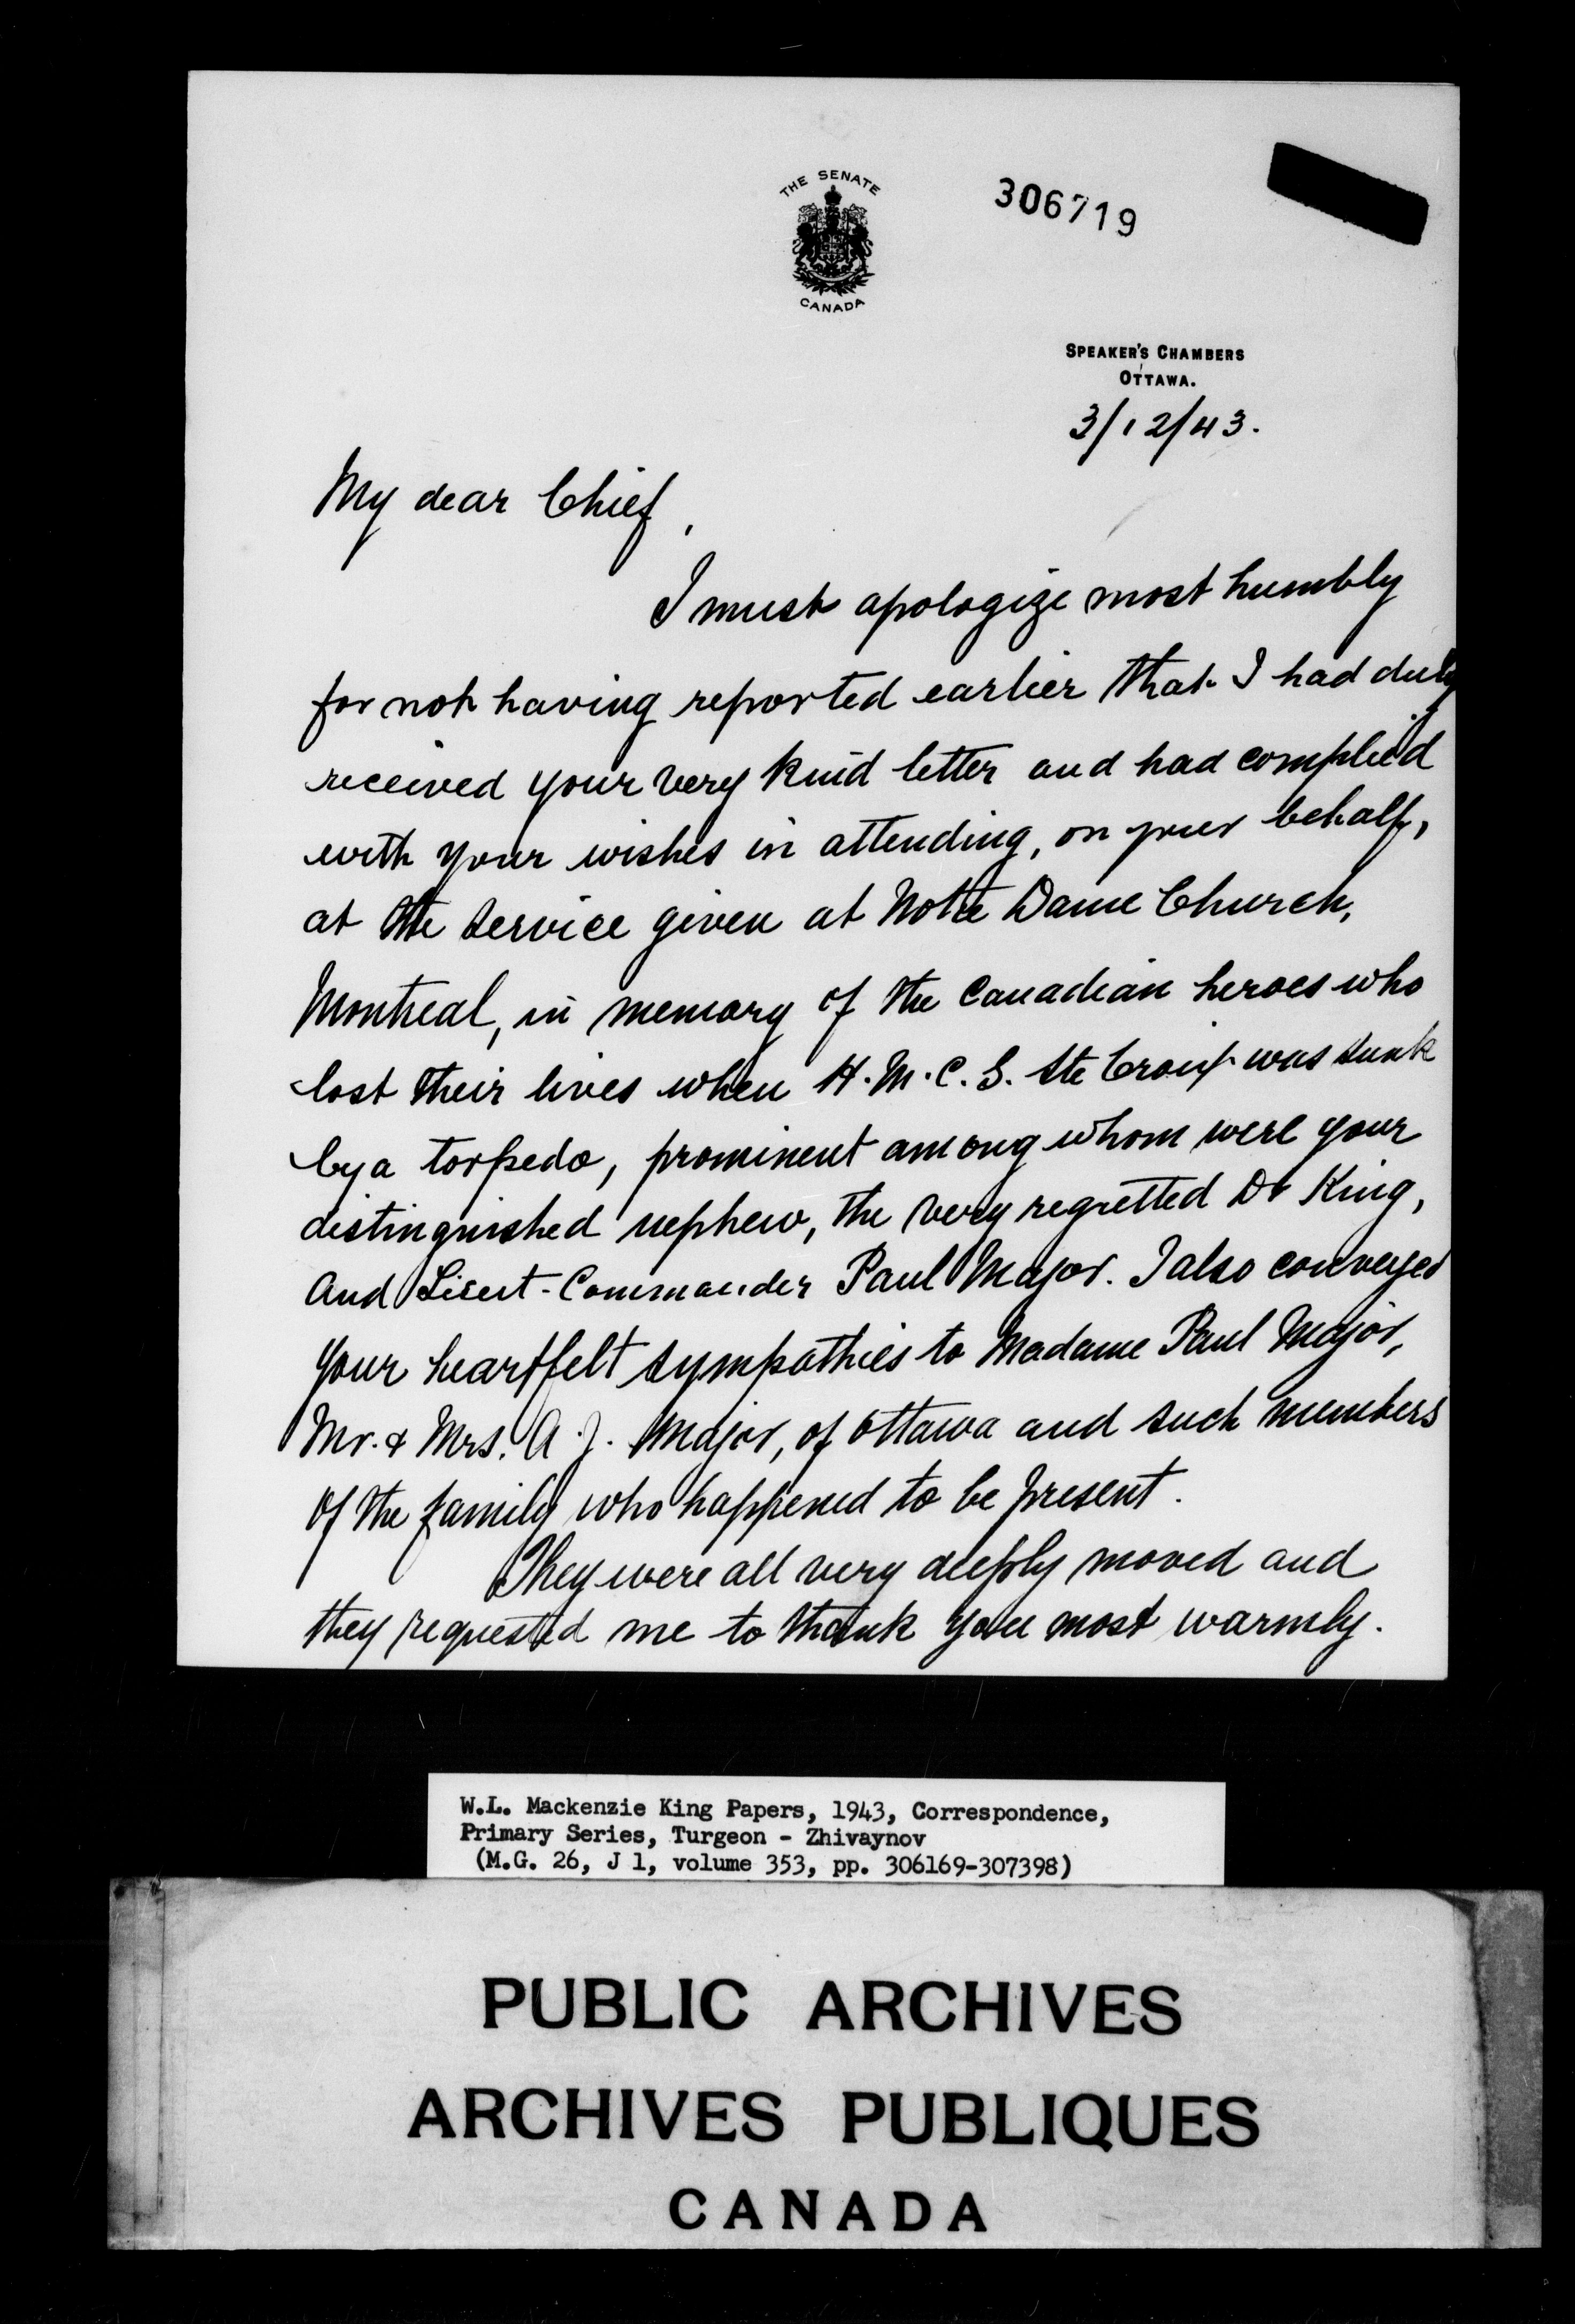 THE SENATE
CANADA
306719
SPEAKER'S CHAMBERS
OTTAWA.
3/12/43.
My dear Chief,
I must apologize most humbly
for not having reported earlier that I had duly
received your very kind letter and had complied
with your wishes in attending, on your behalf,
at the service given at Notre Dame Church,
Montreal, in memory of the Canadian heroes who
lost their lives when H.M.C.S. Ste Croix was sunk
by a torpedo, prominent among whom were your
distinguished nephew, the very regretted Dr King,
and Lieut-Commander Paul Major. I also conveyed
your heartfelt sympathies to Madame Paul Major,
Mr. & Mrs. A.J. Major, of Ottawa and such members
of the family who happened to be present.
They were all very deeply moved and
they requested me to thank you most warmly.
W.L. Mackenzie King Papers, 1943, Correspondence,
Primary Series, Turgeon - Zhivaynov
(M.G. 26, J 1, volume 353, pp. 306169-307398)
PUBLIC ARCHIVES
ARCHIVES PUBLIQUES
CANADA